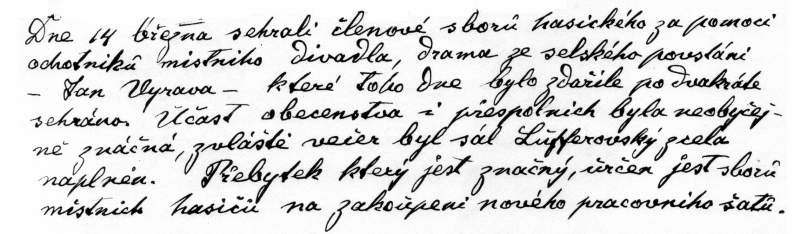 Dne 14 března sehráli členové sborů hasického za pomoci
ochotniků místního divadla, drama ze selského povstání
– Jan Vyrava – které toho dne bylo zdařile po dvakráte
sehráno. Účast obecenstva i přespolních byla neobyčej-
ně značná, zvláště večer byl sál Lüfferovský zcela
naplněn. Přebytek který jest značný, určen jest sborů
místních hasičů na zakoupení nového pracovního šatů.